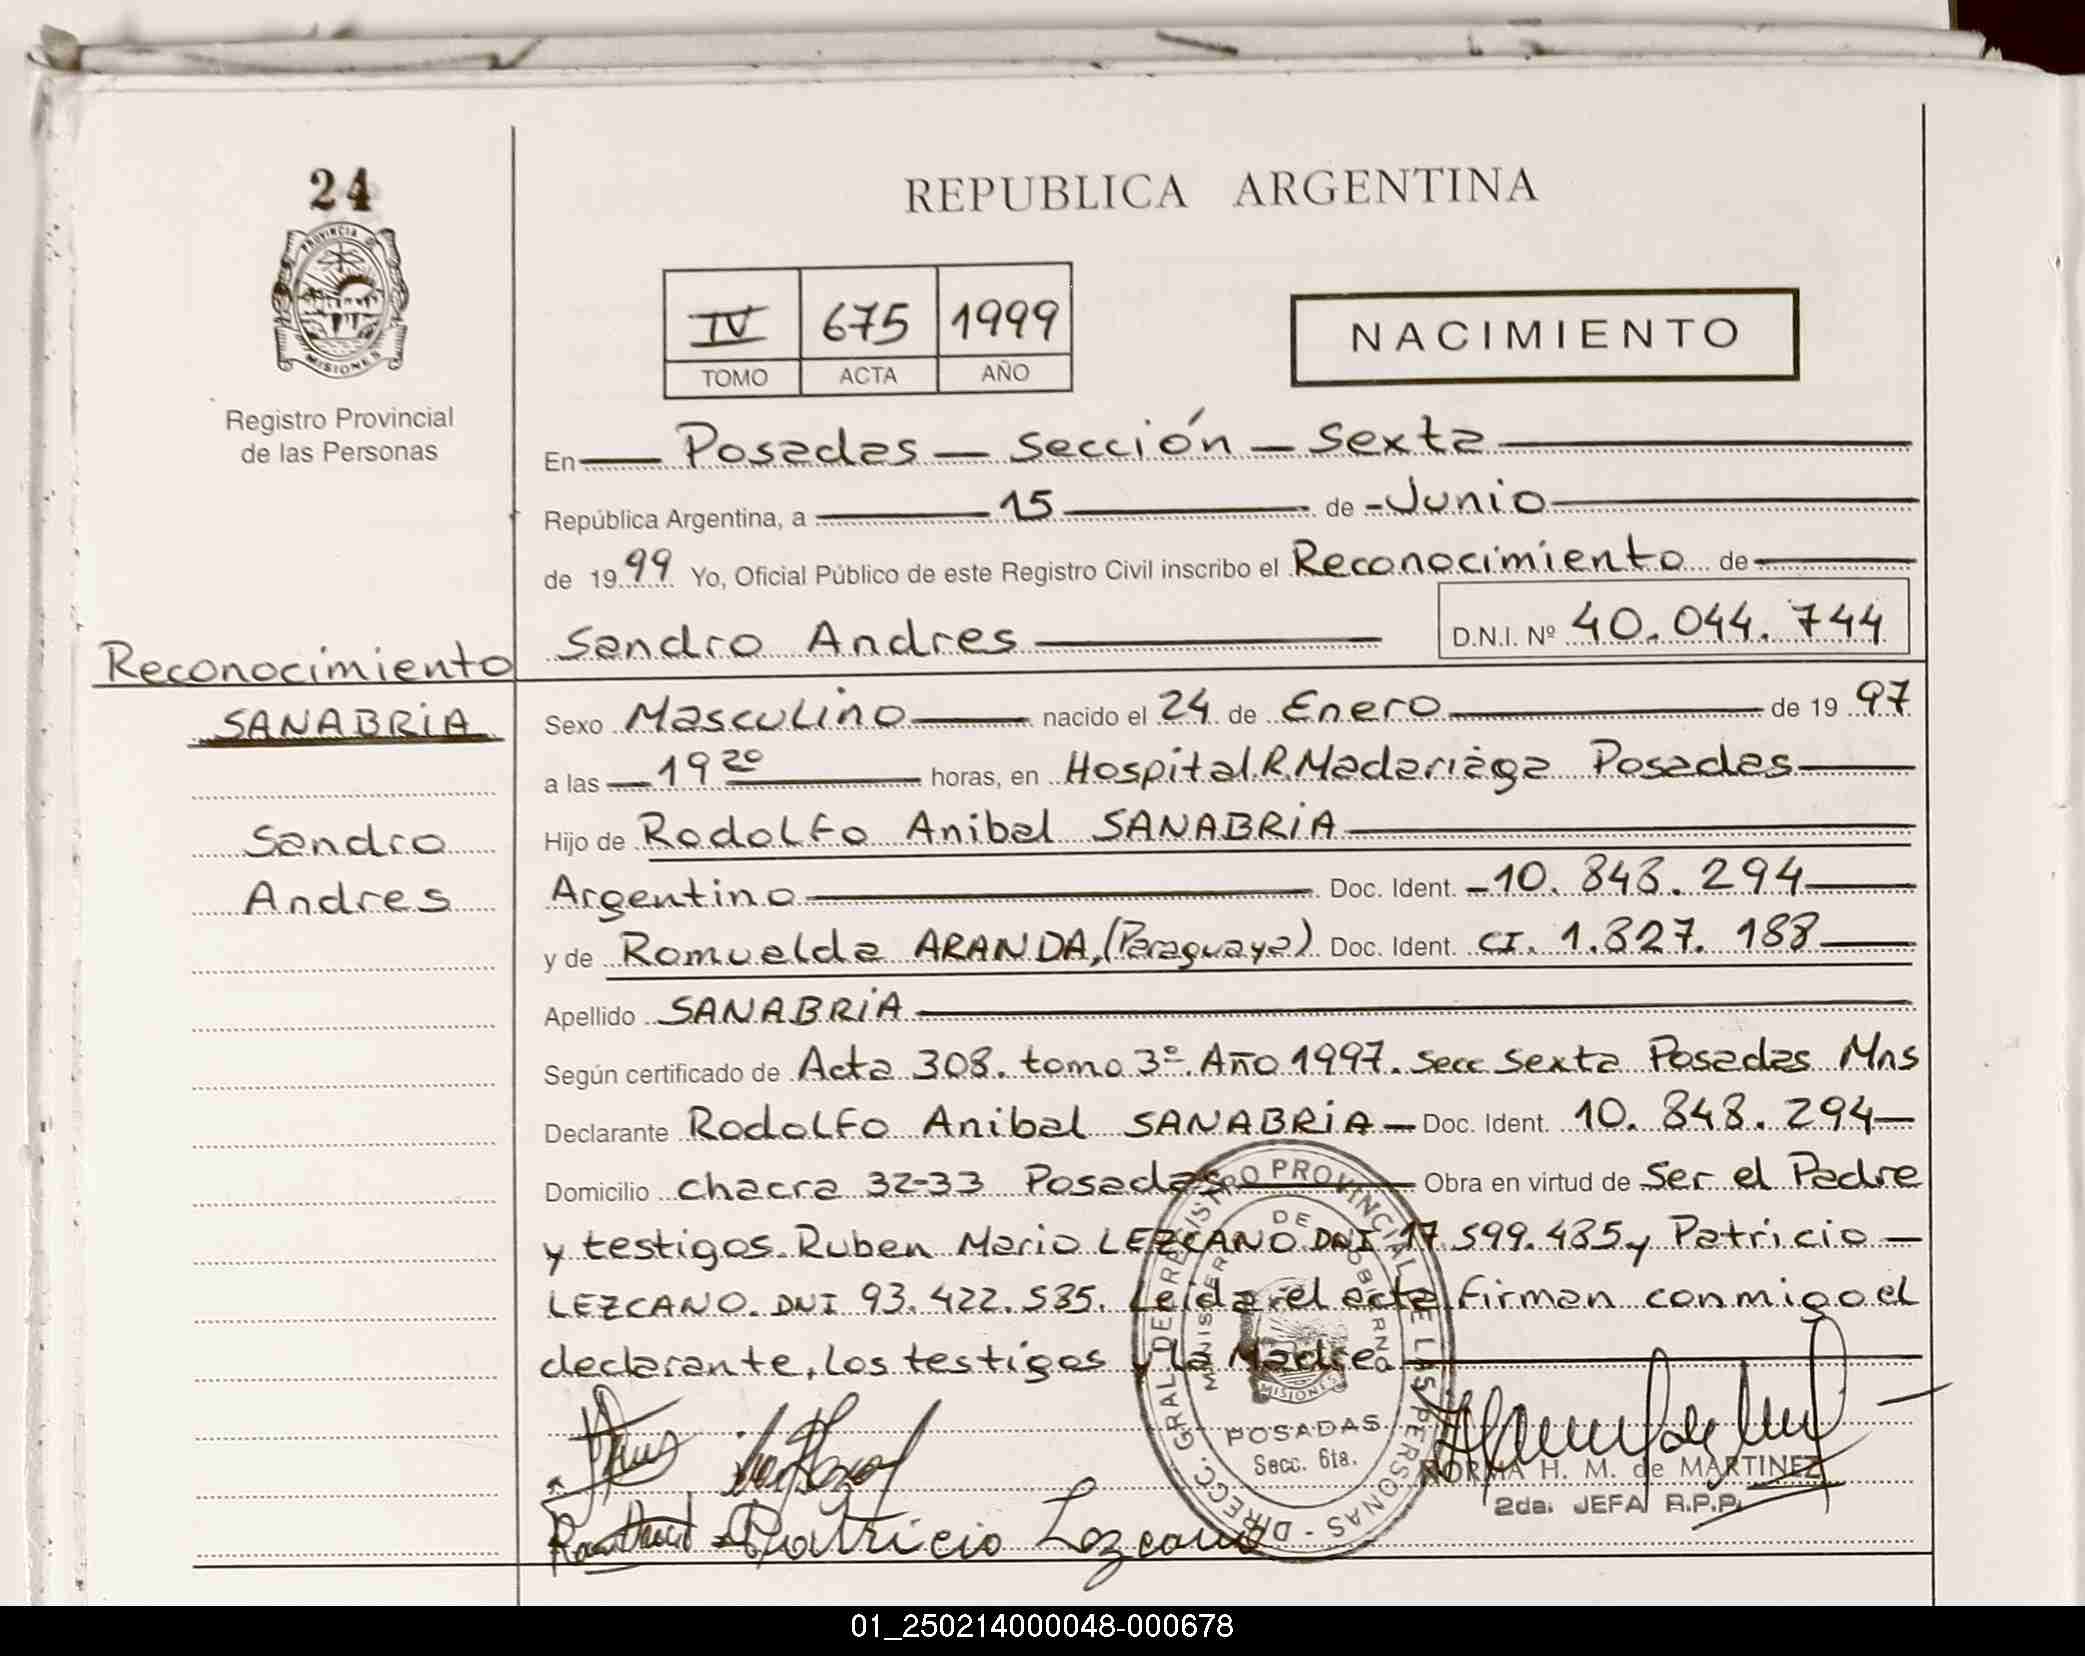 24
PROVINCIA D
MISIONES
Registro Provincial
de las Personas
REPUBLICA ARGENTINA
IV 675 1999
TOMO ACTA AÑO
NACIMIENTO
En Posadas - Sección - Sexta
República Argentina, a 15 de Junio
de 1999 Yo, Oficial Público de este Registro Civil inscribo el Reconocimiento de
Sandro Andres D.N.I. Nº 40.044.744
Reconocimiento
SANABRIA
Sandro
Andres
Sexo Masculino nacido el 24 de Enero de 1997
a las 19 20 horas, en Hospital R. Madariaga Posadas
Hijo de Rodolfo Anibal SANABRIA
Argentino Doc. Ident. 10.848.294
y de Romualda ARANDA, (Paraguaya) Doc. Ident. CI. 1.827.188
Apellido SANABRIA
Según certificado de Acta 308. tomo 3º. Año 1997. Secc Sexta Posadas Mns
Declarante Rodolfo Anibal SANABRIA - Doc. Ident. 10.848.294
Domicilio chacra 32-33 Posadas Obra en virtud de Ser el Padre
y testigos. Ruben Mario LEZCANO DNI 17.599.485 y Patricio
LEZCANO. DNI 93.422.535. Leída el acta firman conmigo el
declarante, los testigos y la Madre
DIRECC. GRAL. DE REGISTRO PROVINCIAL DE LAS PERSONAS
MINISTERIO DE GOBIERNO
MISIONES
POSADAS
Secc. 6ta.
Patricio Lezcano
NORMA H. M. de MARTINEZ
2da. JEFA R.P.P.
01_250214000048-000678